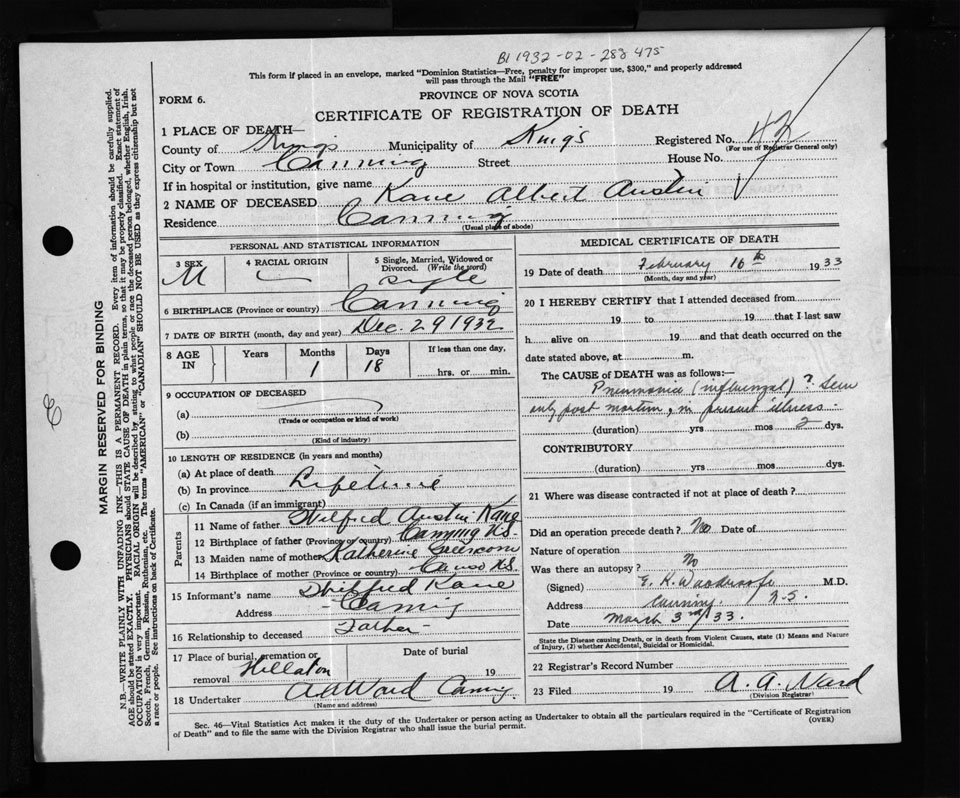 B1 1932-02-288475
This form if placed in an envelope, marked "Dominion Statistics—Free, penalty for improper use, $300," and properly addressed
will pass through the Mail "FREE"
PROVINCE OF NOVA SCOTIA
FORM 6.
CERTIFICATE OF REGISTRATION OF DEATH
1 PLACE OF DEATH—
County of Kings Municipality of Kings Registered No.
(For use of Registrar General only)
City or Town Canning Street House No.
If in hospital or institution, give name
2 NAME OF DECEASED Kane Albert Austin
Residence Canning
(Usual place of abode)
PERSONAL AND STATISTICAL INFORMATION
3 SEX M
4 RACIAL ORIGIN
5 Single, Married, Widowed or
Divorced. (Write the word)
Single
6 BIRTHPLACE (Province or country) Canning
7 DATE OF BIRTH (month, day and year) Dec. 29 1932
8 AGE IN Years Months Days If less than one day,
1 18 hrs. or min.
9 OCCUPATION OF DECEASED
(a)
(Trade or occupation or kind of work)
(b)
(Kind of industry)
10 LENGTH OF RESIDENCE (in years and months)
(a) At place of death
(b) In province Lifetime
(c) In Canada (if an immigrant)
Parents
11 Name of father Wilfred Austin Kane
12 Birthplace of father (Province or country) Canning N.S.
13 Maiden name of mother Katherine
14 Birthplace of mother (Province or country) Canso N.S.
15 Informant's name Wilfred Kane
Address Canning
16 Relationship to deceased Father
17 Place of burial, cremation or removal Hillaton
Date of burial 19
18 Undertaker A A Ward Canning
(Name and address)
MEDICAL CERTIFICATE OF DEATH
19 Date of death February 16th 1933
(Month, day and year)
20 I HEREBY CERTIFY that I attended deceased from
19 to 19 that I last saw
h alive on 19 and that death occurred on the
date stated above, at m.
The CAUSE OF DEATH was as follows:—
Pneumonia (influenzal)? Seen
only post mortem, in present illness.
(duration) yrs mos 2 dys.
CONTRIBUTORY
(duration) yrs mos dys.
21 Where was disease contracted if not at place of death?
Did an operation precede death? No Date of
Nature of operation
Was there an autopsy? No
(Signed) E. K. Woodroofe M.D.
Address Canning N.S.
Date March 3rd/33.
State the Disease causing Death, or in death from Violent Causes, state (1) Means and Nature
of Injury, (2) whether Accidental, Suicidal or Homicidal.
22 Registrar's Record Number
23 Filed 19 A. A. Ward
(Division Registrar)
Sec. 46—Vital Statistics Act makes it the duty of the Undertaker or person acting as Undertaker to obtain all the particulars required in the "Certificate of Registration
of Death" and to file the same with the Division Registrar who shall issue the burial permit.
(OVER)
MARGIN RESERVED FOR BINDING
N.B.—WRITE PLAINLY WITH UNFADING INK—THIS IS A PERMANENT RECORD. Every item of information should be carefully supplied.
AGE should be stated EXACTLY. PHYSICIANS should STATE CAUSE OF DEATH in plain terms, so that it may be properly classified. Exact statement of
OCCUPATION is very important. RACIAL ORIGIN will be described by stating to what people or race the deceased person belonged, whether English, Irish,
Scotch, French, German, Russian, Ruthenian, etc. The terms "AMERICAN" or "CANADIAN" SHOULD NOT BE USED as they express citizenship but not
a race or people. See instructions on back of Certificate.